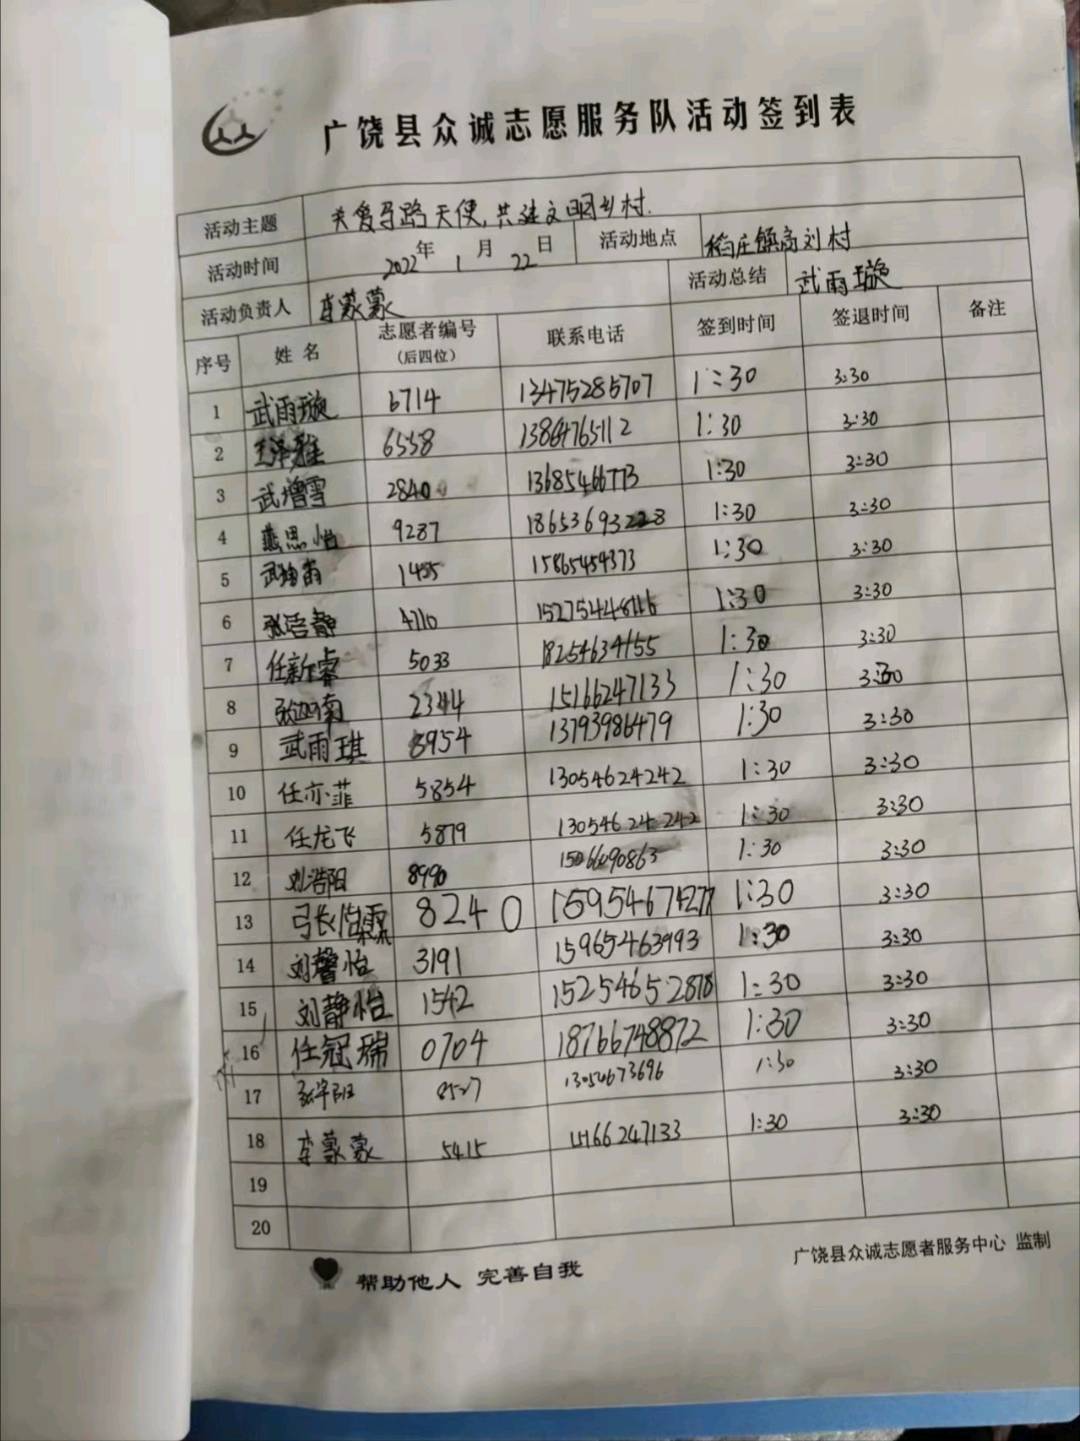 广饶县众诚志愿服务队活动签到表
活动主题 关爱马路天使,共建文明乡村.
活动时间 2022年1月22日 活动地点 稻庄镇高刘村
活动负责人 李蒙蒙 活动总结 武雨璇
序号 姓名 志愿者编号(后四位) 联系电话 签到时间 签退时间 备注
1 武雨璇 6714 13475285707 1:30 3:30
2 6558 13864765112 1:30 3:30
3 武增雪 2840 13685466773 1:30 3:30
4 燕思怡 9287 18653693228 1:30 3:30
5 15865454373 1:30 3:30
6 张语静 4710 1:30 3:30
7 任新睿 5033 18254634155 1:30 3:30
8 2344 15166247133 1:30 3:30
9 武雨琪 8954 13793986479 1:30 3:30
10 任亦菲 5854 13054624242 1:30 3:30
11 任龙飞 5879 13054624242 1:30 3:30
12 刘浩阳 8990 15066090863 1:30 3:30
13 8240 15954674277 1:30 3:30
14 刘馨怡 3191 15965463993 1:30 3:30
15 刘静怡 1542 15254652878 1:30 3:30
16 任冠瑞 0704 18766748872 1:30 3:30
17 8527 13054673696 1:30 3:30
18 李蒙蒙 5415 15166247133 1:30 3:30
19
20
帮助他人 完善自我 广饶县众诚志愿者服务中心 监制